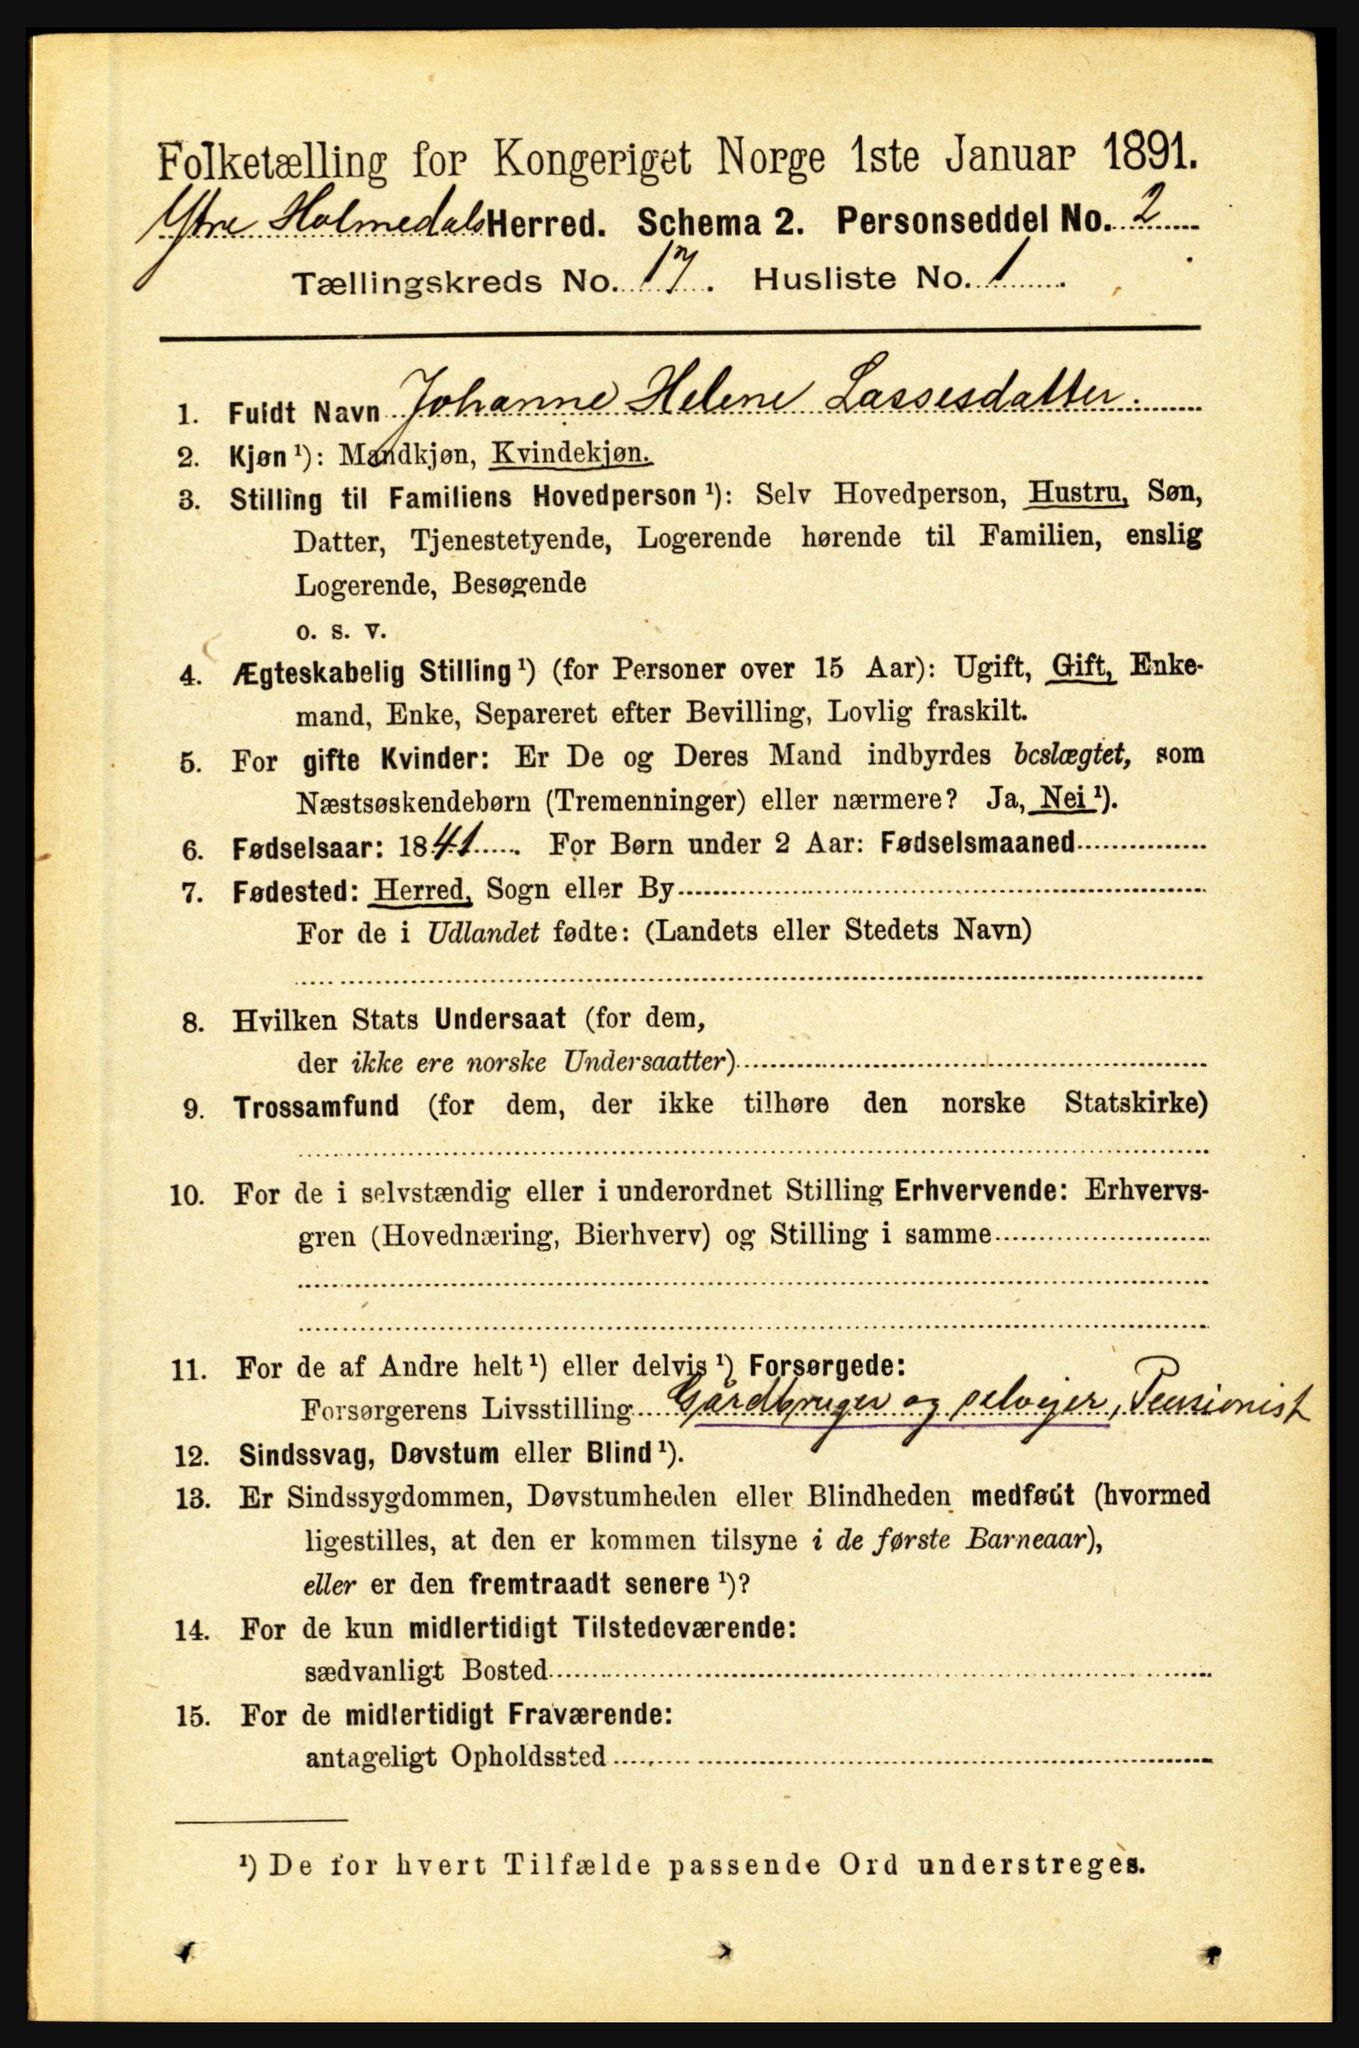 Folketælling for Kongeriget Norge 1ste Januar 1891.
Ytre Holmedals Herred. Schema 2. Personseddel No. 2
Tællingskreds No. 17. Husliste No. 1
1. Fuldt Navn Johanne Helene Lassesdatter.
2. Kjøn ¹): Mandkjøn, Kvindekjøn.
3. Stilling til Familiens Hovedperson ¹): Selv Hovedperson, Hustru, Søn,
Datter, Tjenestetyende, Logerende hørende til Familien, enslig
Logerende, Besøgende
o. s. v.
4. Ægteskabelig Stilling ¹) (for Personer over 15 Aar): Ugift, Gift, Enke-
mand, Enke, Separeret efter Bevilling, Lovlig fraskilt.
5. For gifte Kvinder: Er De og Deres Mand indbyrdes beslægtet, som
Næstsøskendebørn (Tremenninger) eller nærmere? Ja, Nei ¹).
6. Fødselsaar: 1841. For Børn under 2 Aar: Fødselsmaaned
7. Fødested: Herred, Sogn eller By
For de i Udlandet fødte: (Landets eller Stedets Navn)
8. Hvilken Stats Undersaat (for dem,
der ikke ere norske Undersaatter)
9. Trossamfund (for dem, der ikke tilhøre den norske Statskirke)
10. For de i selvstændig eller i underordnet Stilling Erhvervende: Erhvervs-
gren (Hovednæring, Bierhverv) og Stilling i samme
11. For de af Andre helt ¹) eller delvis ¹) Forsørgede:
Forsørgerens Livsstilling Gårdbruger og selvejer, Pensionist
12. Sindssvag, Døvstum eller Blind ¹).
13. Er Sindssygdommen, Døvstumheden eller Blindheden medfødt (hvormed
ligestilles, at den er kommen tilsyne i de første Barneaar),
eller er den fremtraadt senere ¹)?
14. For de kun midlertidigt Tilstedeværende:
sædvanligt Bosted
15. For de midlertidigt Fraværende:
antageligt Opholdssted
¹) De for hvert Tilfælde passende Ord understreges.